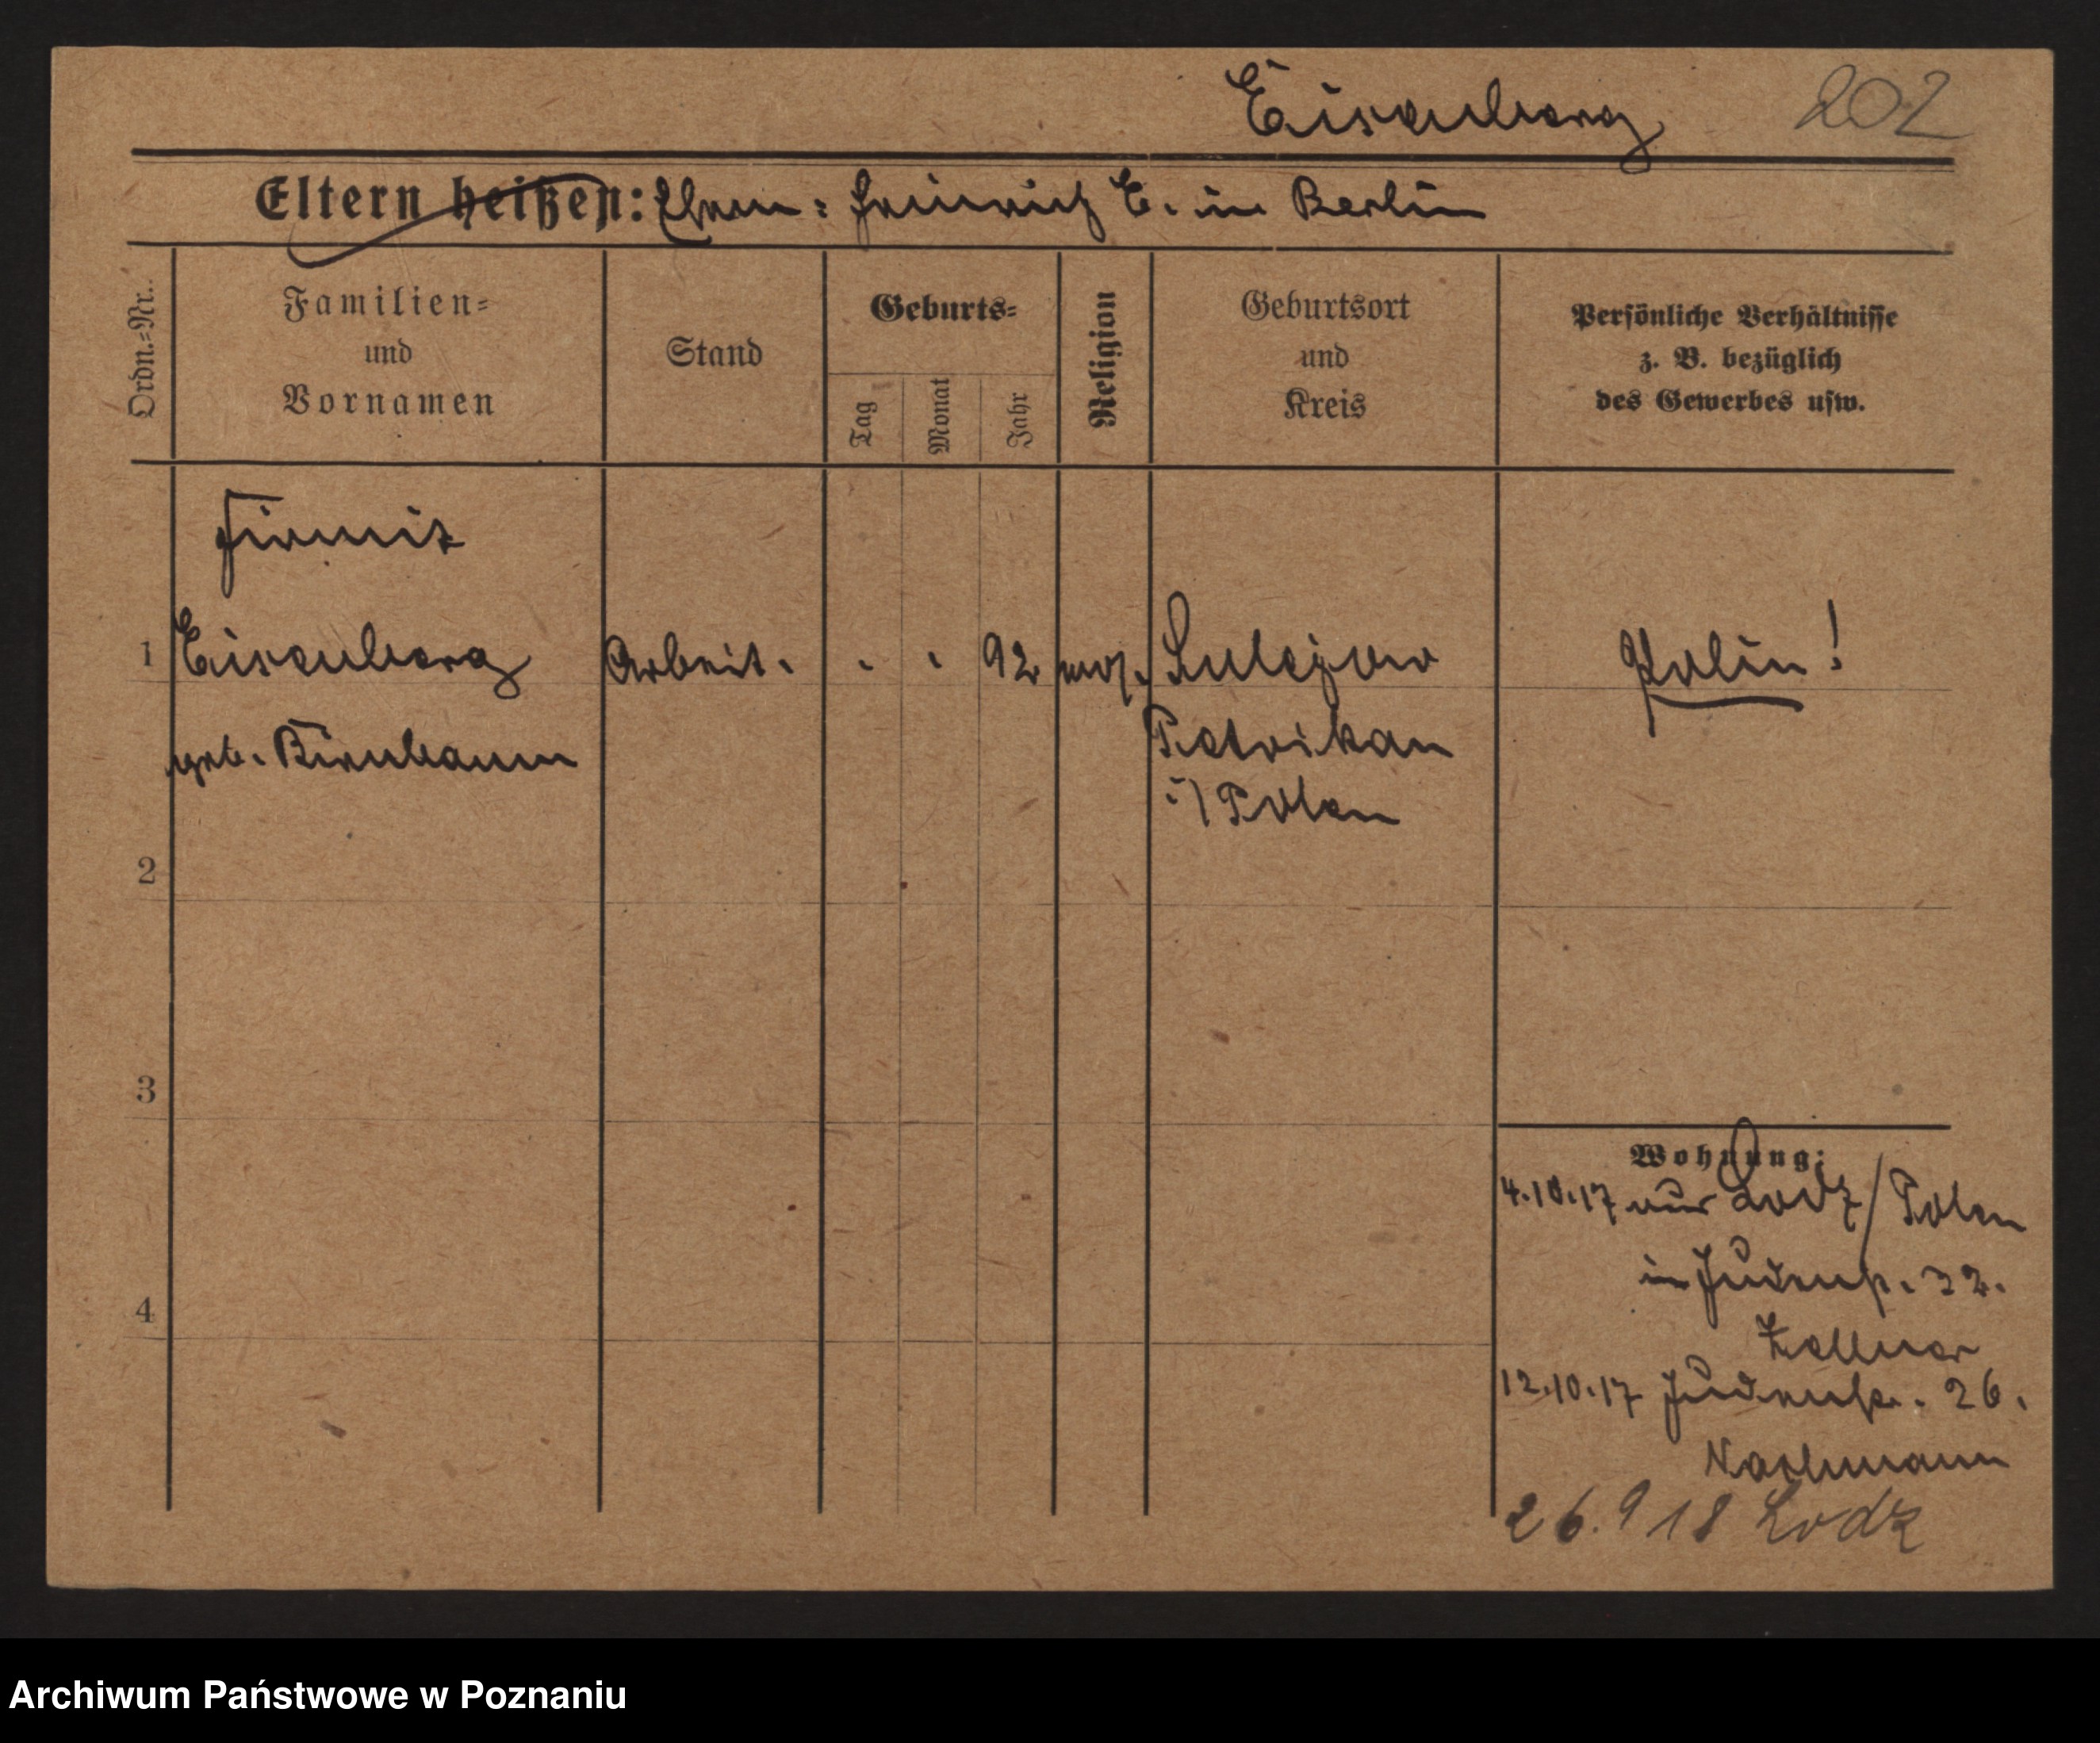 Eisenberg 202
Eltern heißen: Ehem: Heinrich E. in Berlin
Ordn.-Nr.
Familien-
und
Vornamen
Stand
Geburts-
Tag
Monat
Jahr
Religion
Geburtsort
und
Kreis
Persönliche Verhältnisse
z. B. bezüglich
des Gewerbes usw.
1 Eisenberg Arbeit. . . 92 mos. Sulejow Polin!
geb. Birnbaum Petrikau
i/ Polen
2
3
4
Wohnung:
4.10.17 aus Lodz/Polen
in Judenstr. 32.
Zellner
12.10.17 Judenstr. 26.
Nachmann
26.9 18 Lodz
Archiwum Państwowe w Poznaniu